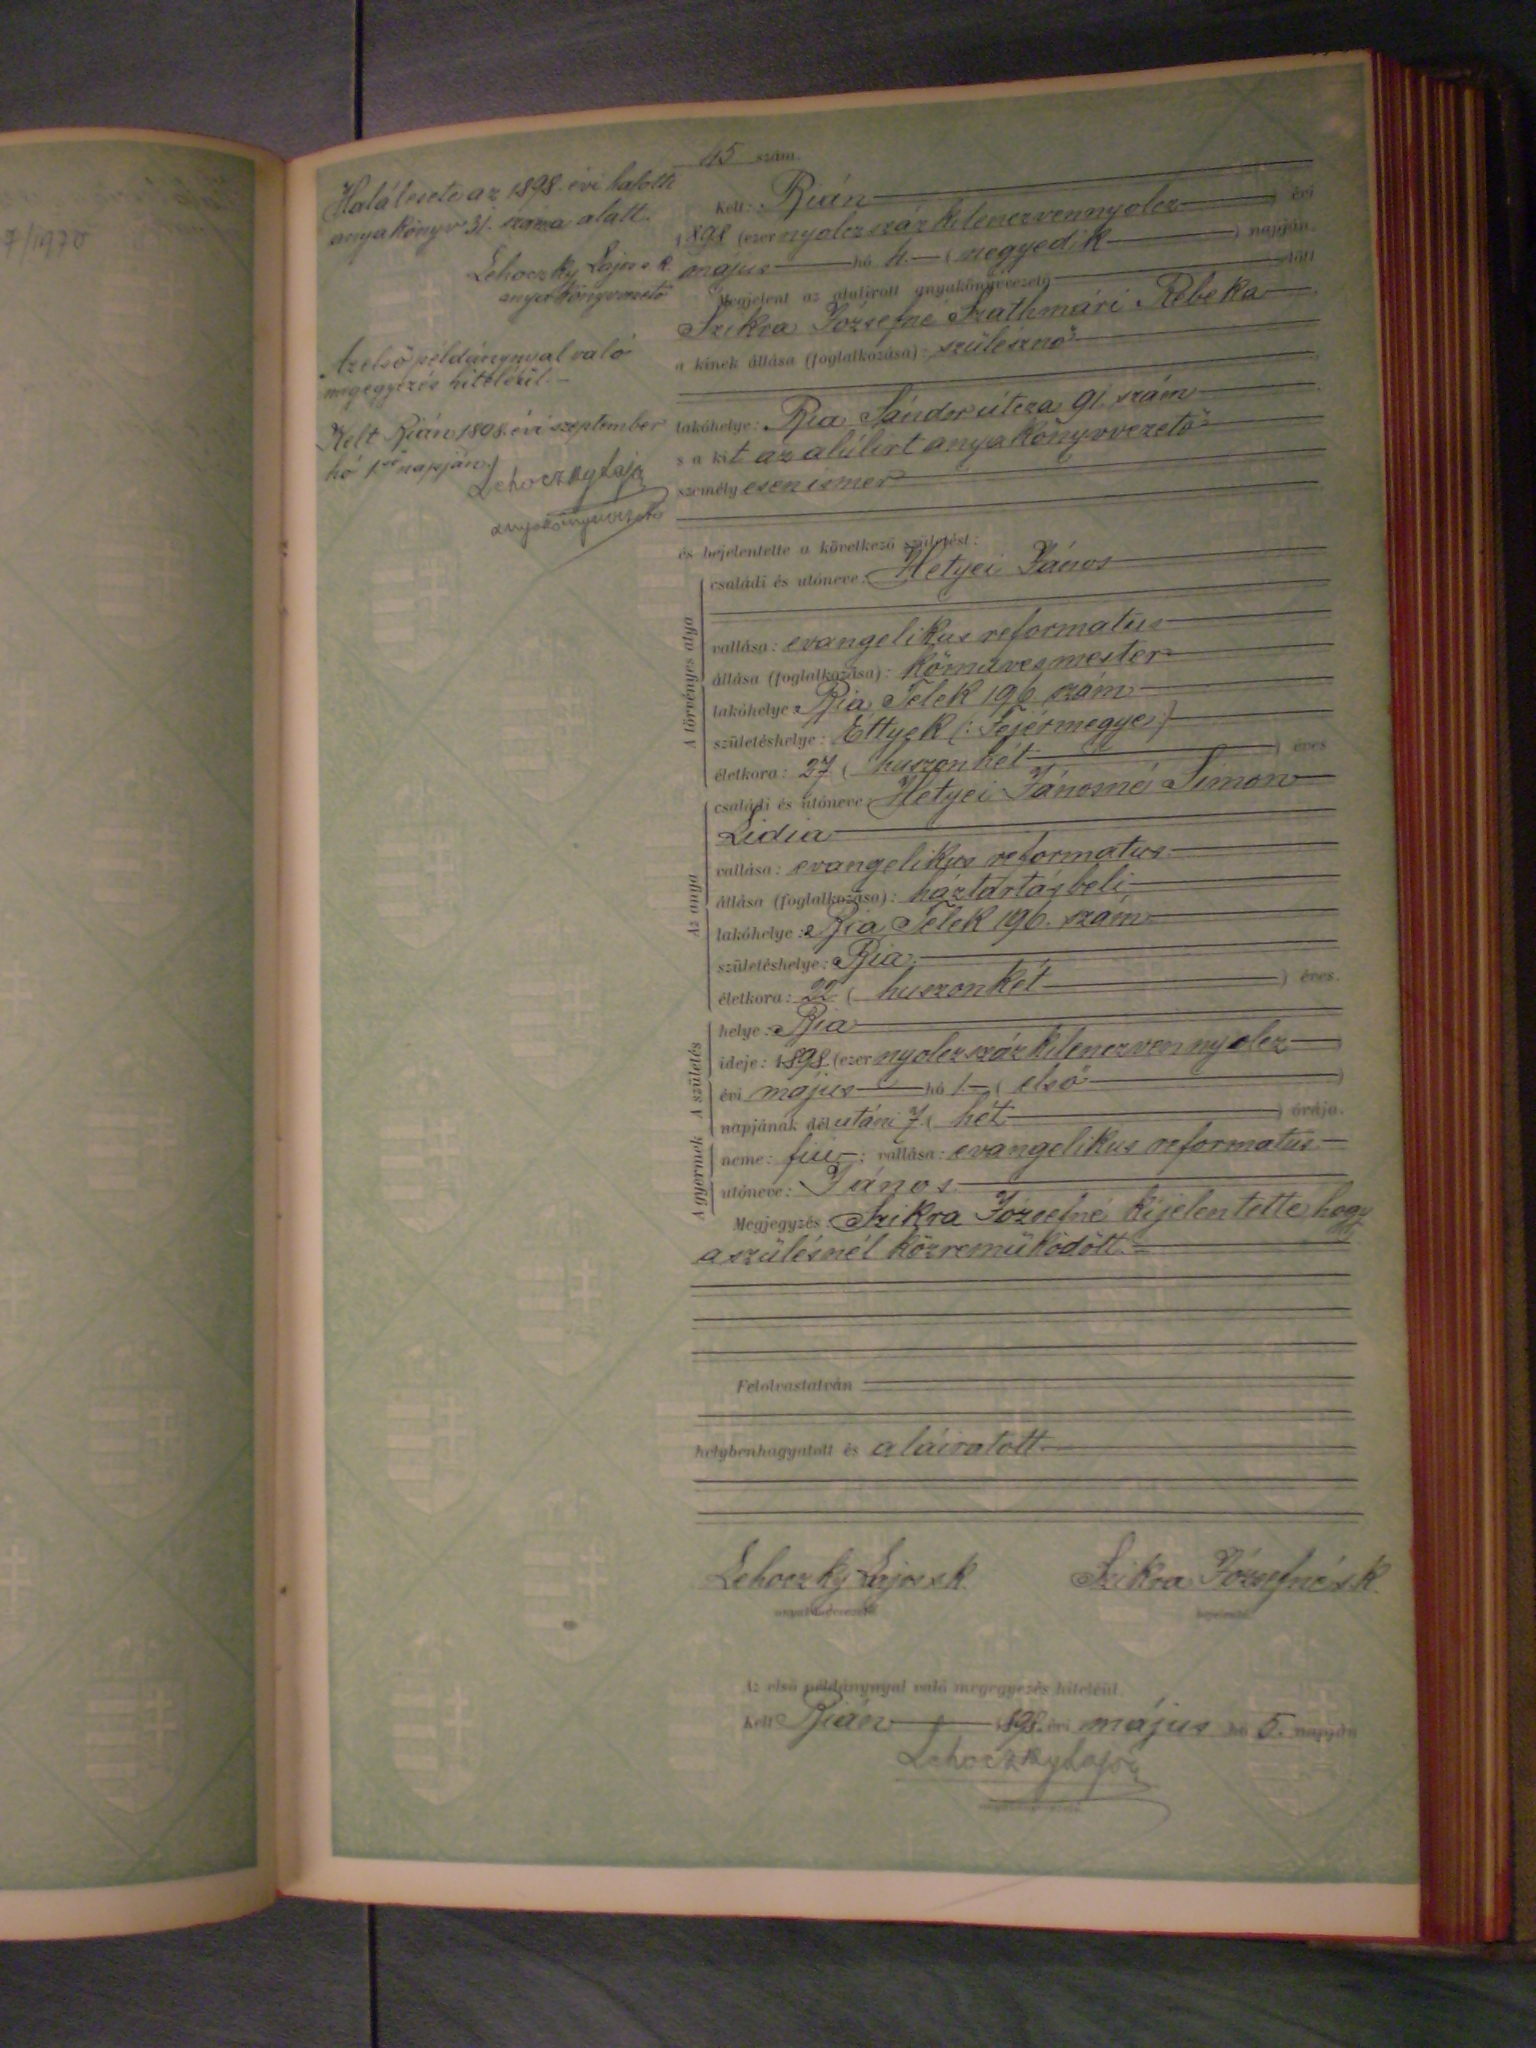 7/1970
Halálesete az 1898. évi halotti
anyakönyv 31. száma alatt.
Lehoczky Lajos s. k.
anyakönyvvezető
Az első példánynyal való
megegyezés hiteléül. –
Kelt Bián 1898. évi szeptember
hó 1-én napján
Lehoczky Lajos
anyakönyvvezető
45 szám.
Kelt: Bián
1898 (ezer nyolczszázkilenczvennyolcz) évi
május hó 4. (negyedik) napján.
Megjelent az alulirott anyakönyvvezető előtt
Szikra Józsefné Szathmári Rebeka
a kinek állása (foglalkozása): szülésznő
lakóhelye: Bia Sándor útcza 91. szám
s a kit az alúlirt anyakönyvvezető
személyesen ismer
és bejelentette a következő születést:
A törvényes atya
családi és utóneve: Hetyei János
vallása: evangelikus reformatus
állása (foglalkozása): kőművesmester
lakóhelye: Bia Telek 196 szám
születéshelye: Ettyek (: Fejérmegye:)
életkora: 27 (huszonhét) éves
Az anya
családi és utóneve: Hetyei Jánosné Simon
Lidia
vallása: evangelikus reformatus
állása (foglalkozása): háztartásbeli
lakóhelye: Bia Telek 196. szám
születéshelye: Bia
életkora: 22 (huszonkét) éves.
A születés
helye: Bia
ideje: 1898 (ezer nyolczszázkilenczvennyolcz)
évi május hó 1. (első)
napjának délutáni 7 (hét) órája.
A gyermek
neme: fiú; vallása: evangelikus reformatus
utóneve: János
Megjegyzés: Szikra Józsefné kijelentette, hogy
a szülésnél közreműködött.
Felolvastatván
helybenhagyatott és aláiratott.
Lehoczky Lajos s. k. Szikra Józsefné s. k.
anyakönyvvezető. bejelentő.
Az első példánynyal való megegyezés hiteléül.
Kelt Bián 1898. évi május hó 5. napján
Lehoczky Lajos